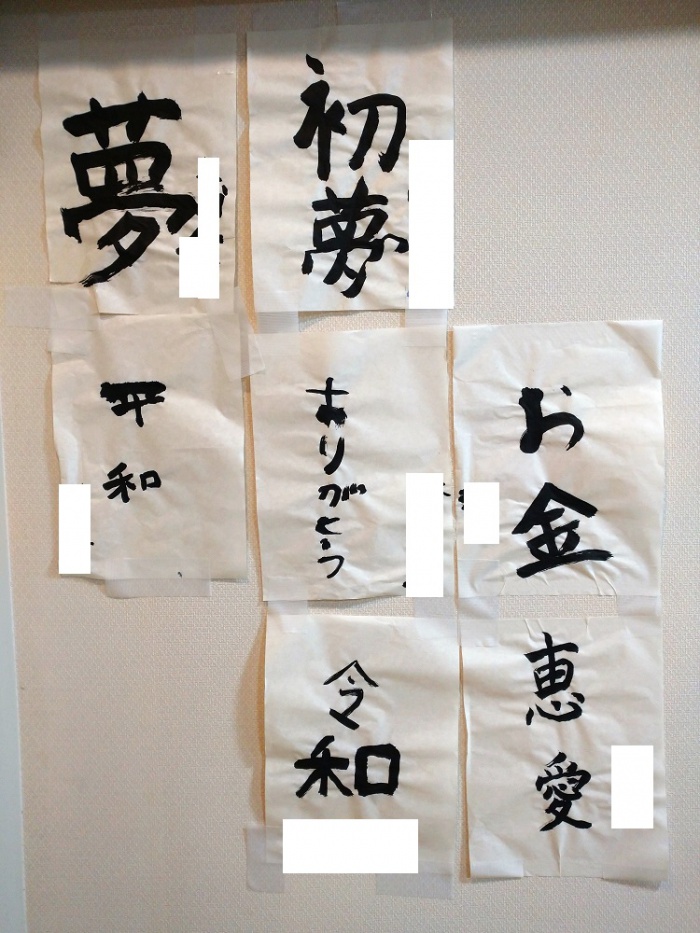 夢
初夢
平和
ありがとう
お金
令和
恵愛